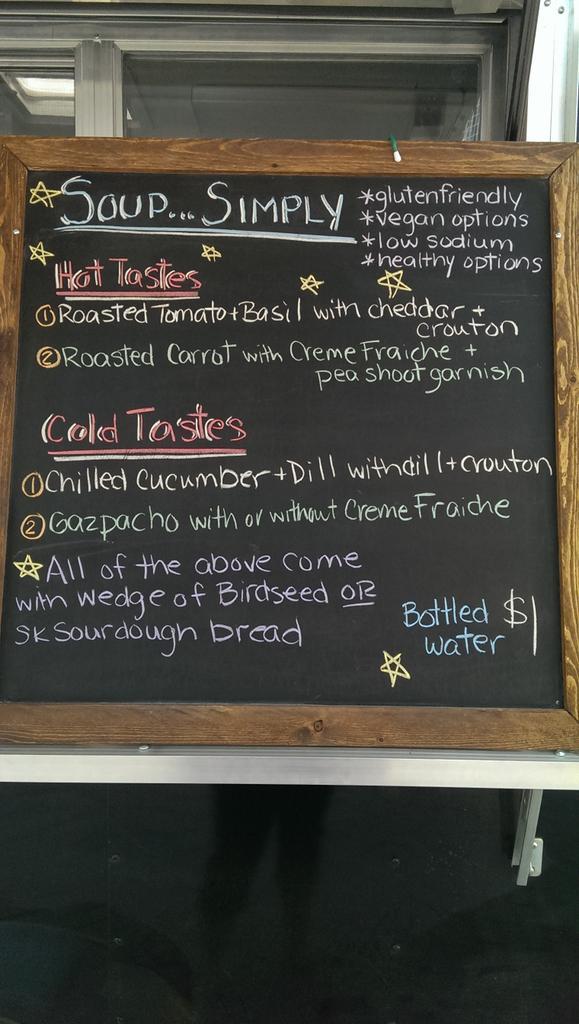 SOUP... SIMPLY
*glutenfriendly
*vegan options
*low sodium
*healthy options
Hot Tastes
① Roasted Tomato + Basil with cheddar +
crouton
② Roasted Carrot with Creme Fraiche +
pea shoot garnish
Cold Tastes
① Chilled Cucumber + Dill with dill + crouton
② Gazpacho with or without Creme Fraiche
☆ All of the above come
with wedge of Birdseed OR
SK Sourdough bread
Bottled $1
water